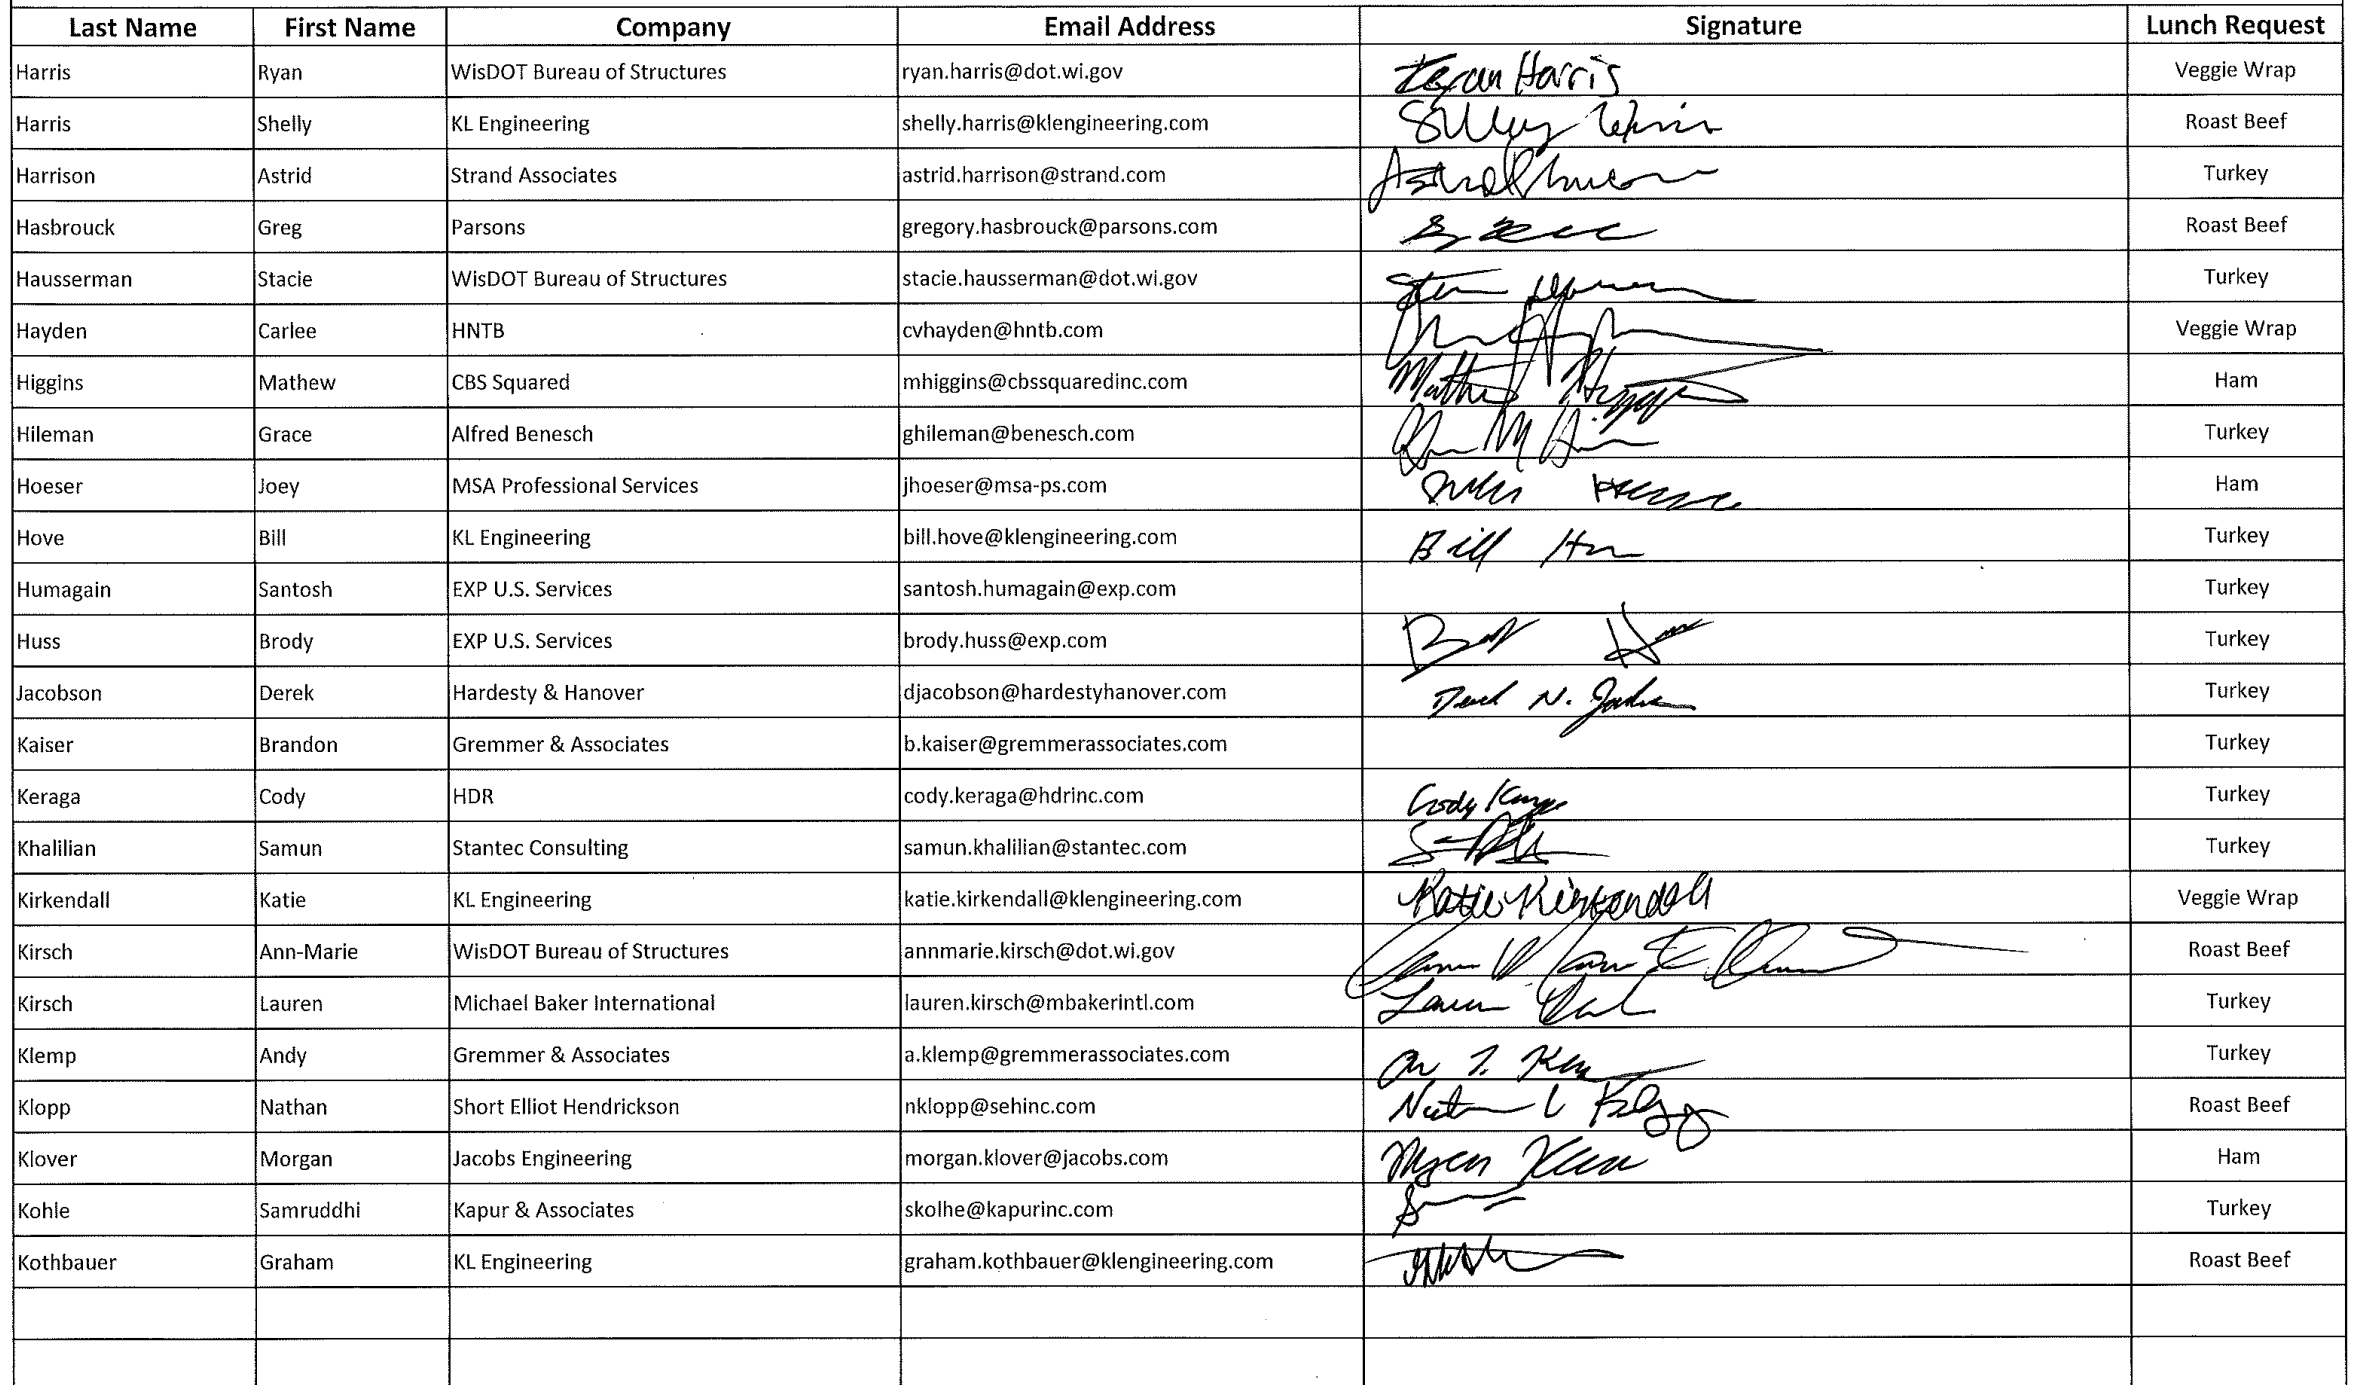 Last Name First Name Company Email Address Signature Lunch Request
Harris Ryan WisDOT Bureau of Structures ryan.harris@dot.wi.gov Ryan Harris Veggie Wrap
Harris Shelly KL Engineering shelly.harris@klengineering.com Roast Beef
Harrison Astrid Strand Associates astrid.harrison@strand.com Turkey
Hasbrouck Greg Parsons gregory.hasbrouck@parsons.com Roast Beef
Hausserman Stacie WisDOT Bureau of Structures stacie.hausserman@dot.wi.gov Turkey
Hayden Carlee HNTB cvhayden@hntb.com Veggie Wrap
Higgins Mathew CBS Squared mhiggins@cbssquaredinc.com Ham
Hileman Grace Alfred Benesch ghileman@benesch.com Turkey
Hoeser Joey MSA Professional Services jhoeser@msa-ps.com Ham
Hove Bill KL Engineering bill.hove@klengineering.com Bill Turkey
Humagain Santosh EXP U.S. Services santosh.humagain@exp.com Turkey
Huss Brody EXP U.S. Services brody.huss@exp.com Turkey
Jacobson Derek Hardesty & Hanover djacobson@hardestyhanover.com Derek N. Turkey
Kaiser Brandon Gremmer & Associates b.kaiser@gremmerassociates.com Turkey
Keraga Cody HDR cody.keraga@hdrinc.com Cody Turkey
Khalilian Samun Stantec Consulting samun.khalilian@stantec.com Turkey
Kirkendall Katie KL Engineering katie.kirkendall@klengineering.com Katie Kirkendall Veggie Wrap
Kirsch Ann-Marie WisDOT Bureau of Structures annmarie.kirsch@dot.wi.gov Roast Beef
Kirsch Lauren Michael Baker International lauren.kirsch@mbakerintl.com Lauren Turkey
Klemp Andy Gremmer & Associates a.klemp@gremmerassociates.com Turkey
Klopp Nathan Short Elliot Hendrickson nklopp@sehinc.com Roast Beef
Klover Morgan Jacobs Engineering morgan.klover@jacobs.com Ham
Kohle Samruddhi Kapur & Associates skolhe@kapurinc.com Turkey
Kothbauer Graham KL Engineering graham.kothbauer@klengineering.com Roast Beef